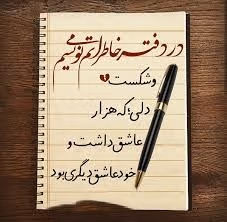 در دفتر خاطراتم نویسم
و شکست
دلی؛ که هزار
عاشق داشت و
خود عاشق دیگری بود